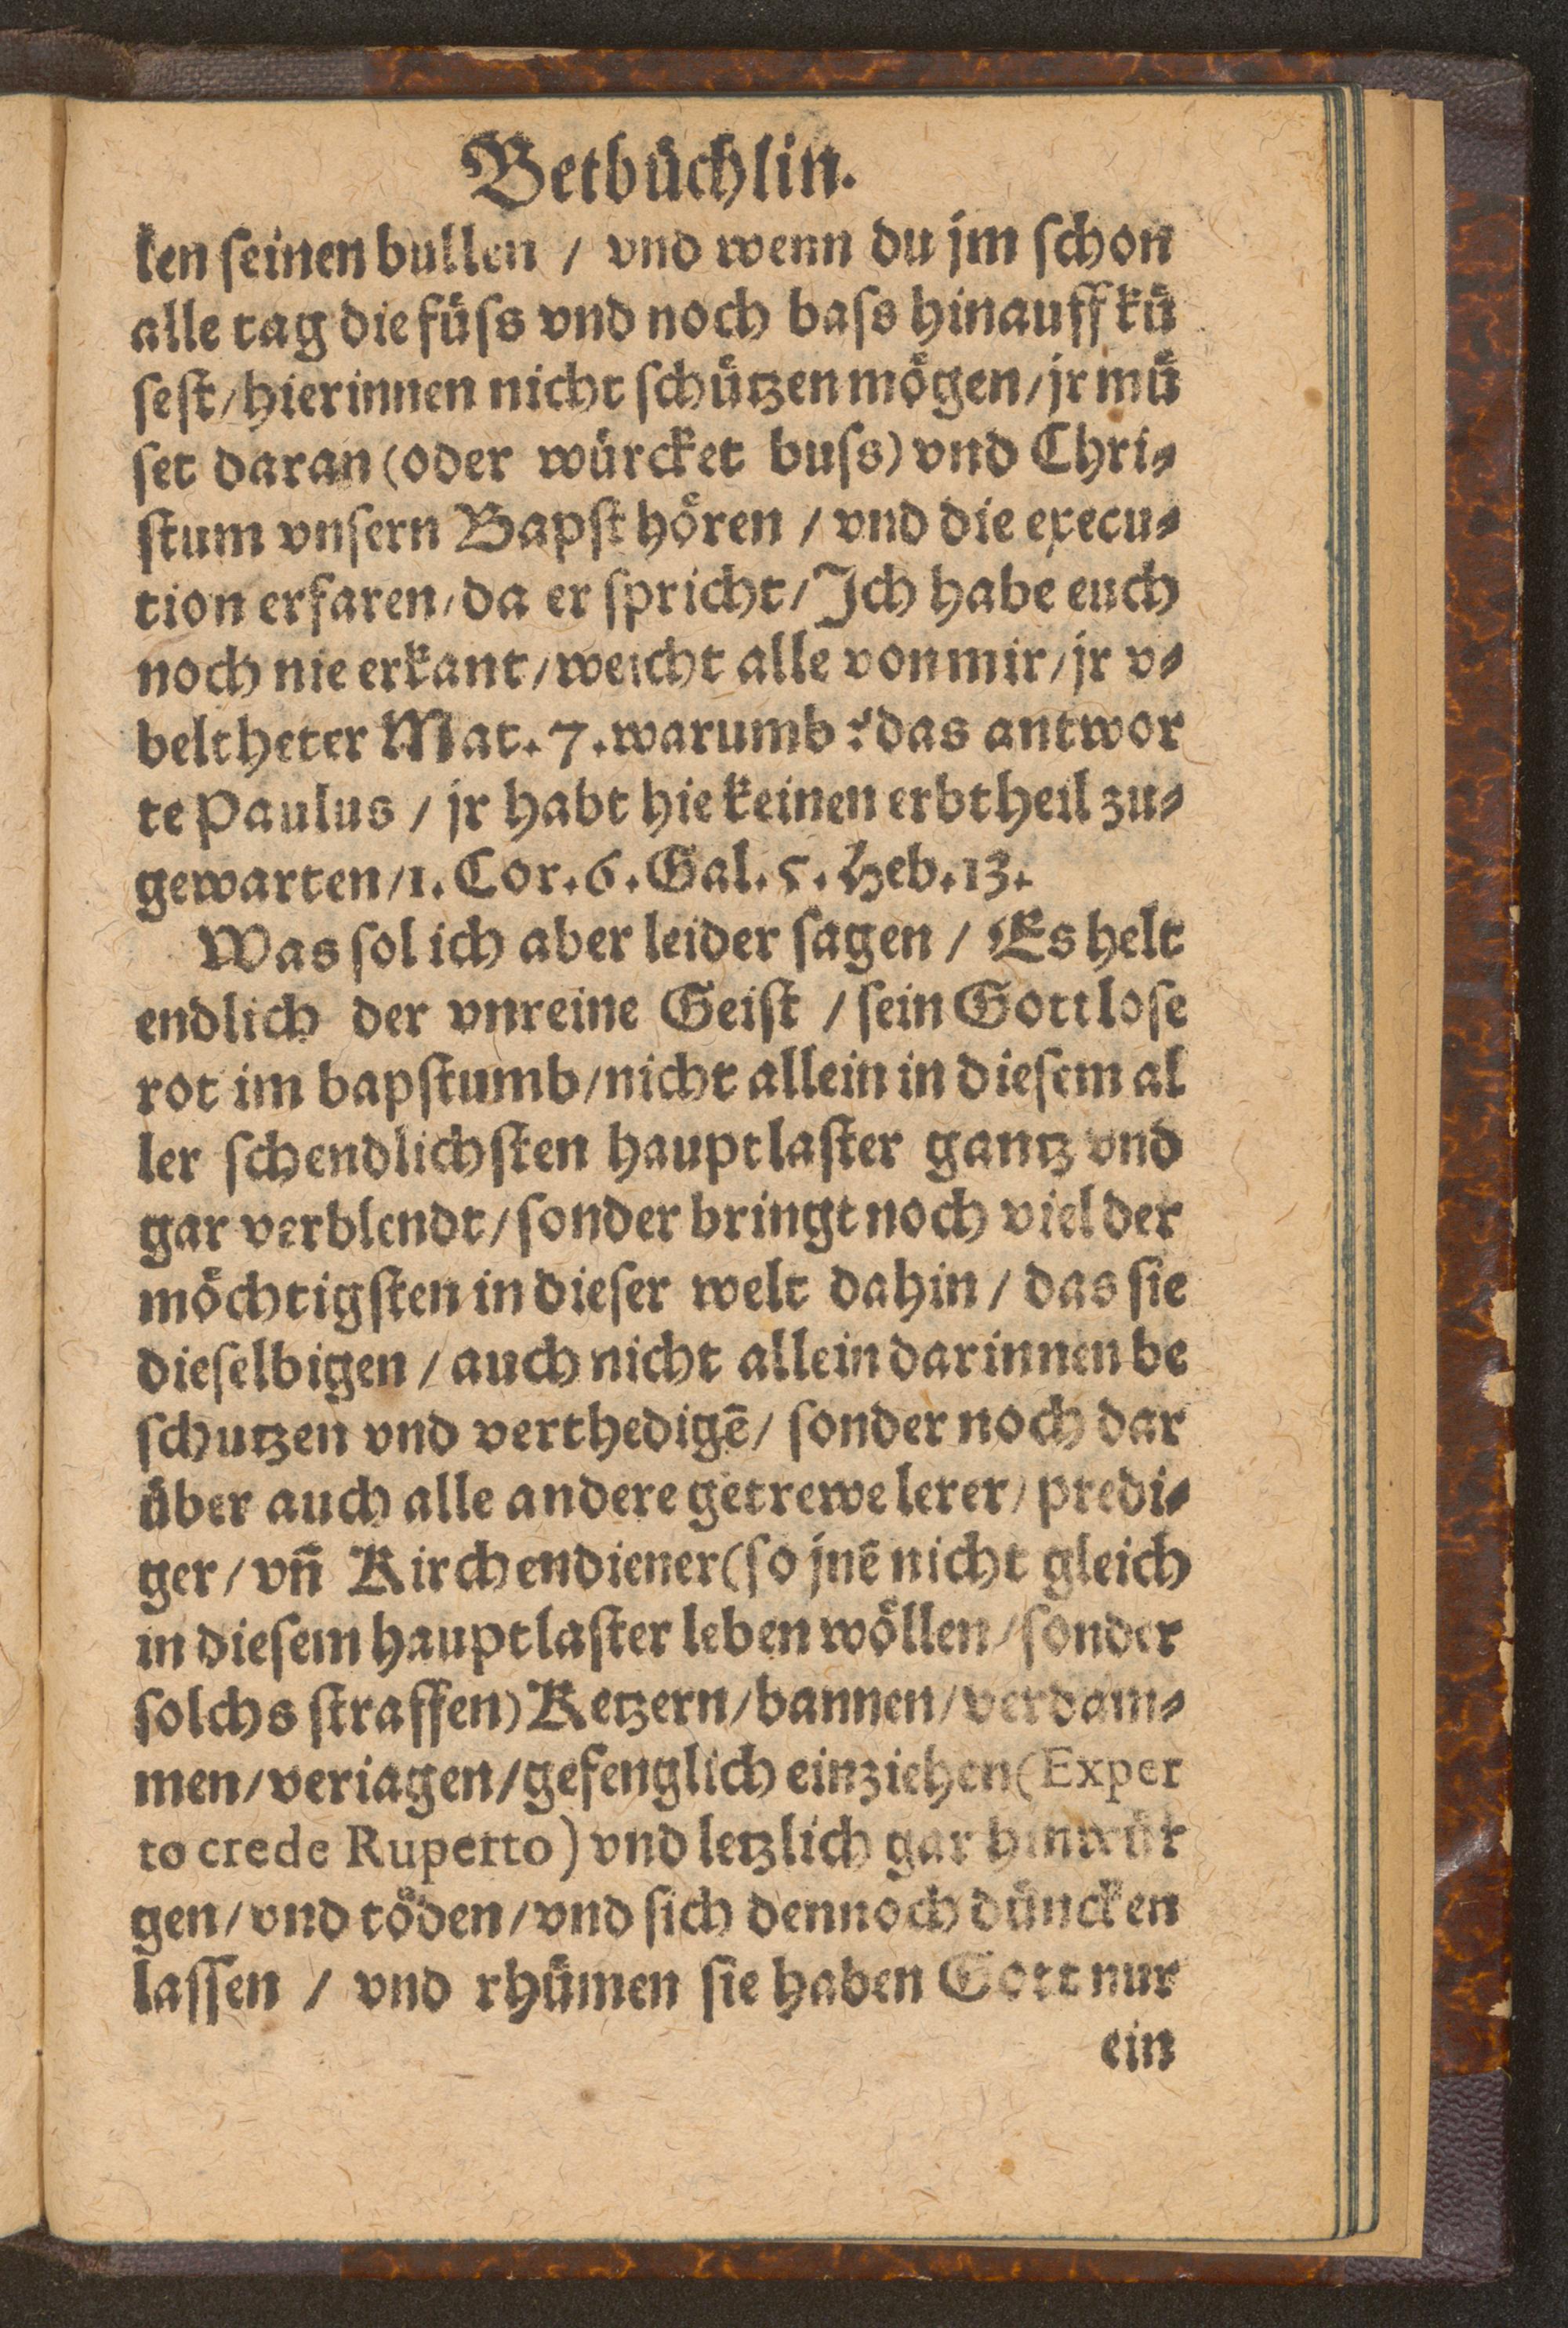 Betbüchlin.
ken seinen bullen / vnd wenn du jm schon
alle tag die füſs vnd noch baſs hinauff kü
sest / hierinnen nicht schützen mögen / jr mü
set daran (oder würcket buſs) vnd Chri⸗
stum vnsern Bapst hören / vnd die execu⸗
tion erfaren / da er spricht / Ich habe euch
noch nie erkant / weicht alle von mir / jr v⸗
beltheter Mat. 7. warumb? das antwor
te Paulus / jr habt hie keinen erbtheil zu⸗
gewarten / 1. Cor. 6. Gal. 5. Heb. 13.
Was sol ich aber leider sagen / Es helt
endlich der vnreine Geist / sein Gottlose
rot im bapstumb / nicht allein in diesem al
ler schendlichsten hauptlaster gantz vnd
gar verblendt / sonder bringt noch viel der
möchtigsten in dieser welt dahin / das sie
dieselbigen / auch nicht allein darinnen be
schutzen vnd verthedigē / sonder noch dar
über auch alle andere getrewe lerer / predi⸗
ger / vn̄ Kirchendiener (so jnē nicht gleich
in diesem hauptlaster leben wöllen / sonder
solchs straffen) Ketzern / bannen / verdam⸗
men / veriagen / gefenglich einziehen (Exper
to crede Ruperto) vnd letzlich gar hinwür
gen / vnd töden / vnd sich dennoch düncken
lassen / vnd rhümen sie haben Gott nur
ein